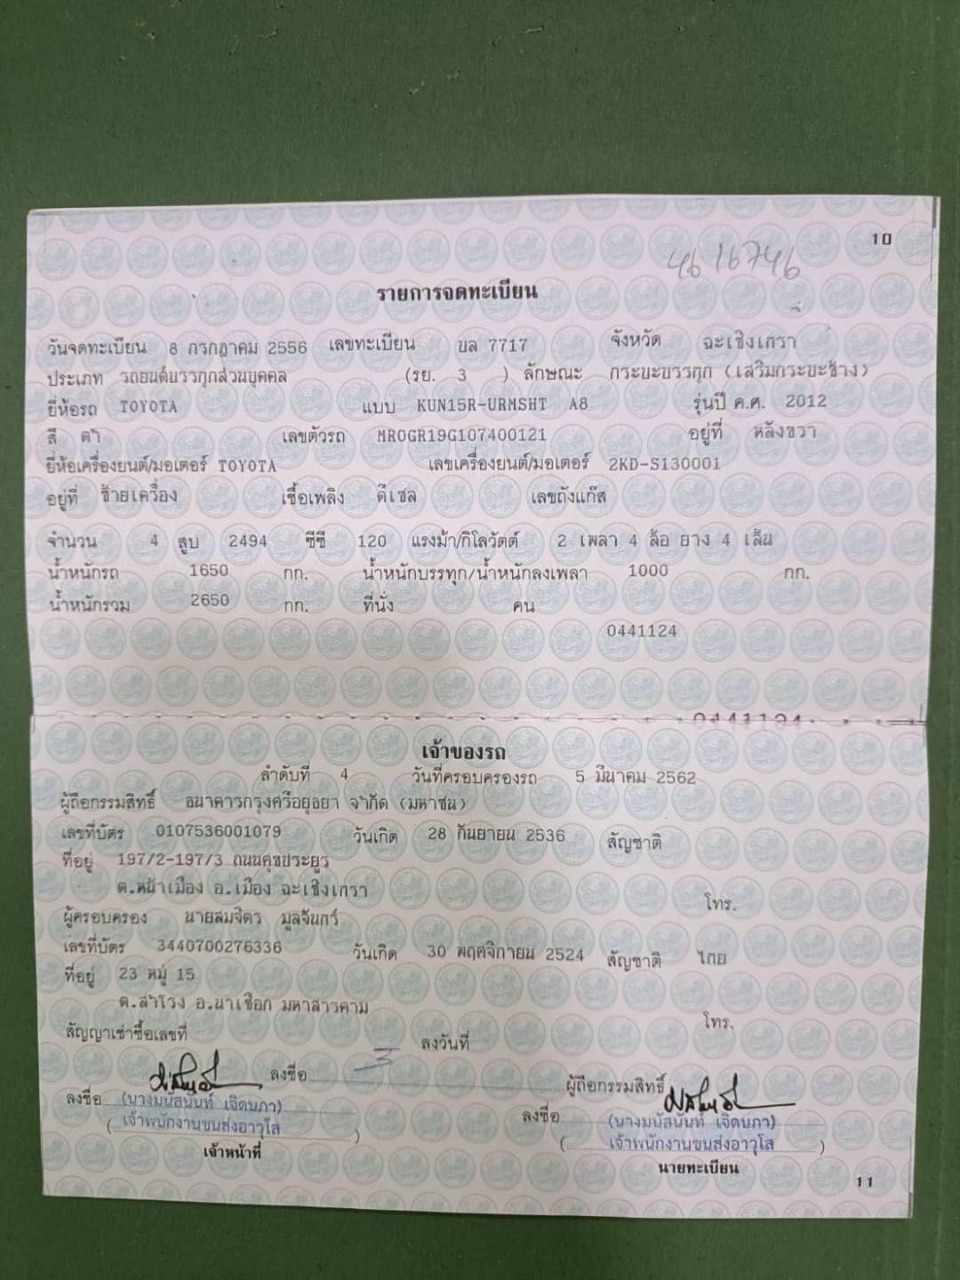 10
4616746
รายการจดทะเบียน
วันจดทะเบียน 8 กรกฎาคม 2556 เลขทะเบียน บล 7717 จังหวัด ฉะเชิงเทรา
ประเภท รถยนต์บรรทุกส่วนบุคคล (รย. 3 ) ลักษณะ กระบะบรรทุก (เสริมกระบะข้าง)
ยี่ห้อรถ TOYOTA แบบ KUN15R-URMSHT A8 รุ่นปี ค.ศ. 2012
สี ดำ เลขตัวรถ MR0GR19G107400121 อยู่ที่ หลังขวา
ยี่ห้อเครื่องยนต์/มอเตอร์ TOYOTA เลขเครื่องยนต์/มอเตอร์ 2KD-S130001
อยู่ที่ ซ้ายเครื่อง เชื้อเพลิง ดีเซล เลขถังแก๊ส
จำนวน 4 สูบ 2494 ซีซี 120 แรงม้า/กิโลวัตต์ 2 เพลา 4 ล้อ ยาง 4 เส้น
น้ำหนักรถ 1650 กก. น้ำหนักบรรทุก/น้ำหนักลงเพลา 1000 กก.
น้ำหนักรวม 2650 กก. ที่นั่ง คน
0441124
0441124
เจ้าของรถ
ลำดับที่ 4 วันที่ครอบครองรถ 5 มีนาคม 2562
ผู้ถือกรรมสิทธิ์ ธนาคารกรุงศรีอยุธยา จำกัด (มหาชน)
เลขที่บัตร 0107536001079 วันเกิด 28 กันยายน 2536 สัญชาติ
ที่อยู่ 197/2-197/3 ถนนศุขประยูร
ต.หน้าเมือง อ.เมือง ฉะเชิงเทรา
โทร.
ผู้ครอบครอง นายสมจิตร มูลจันทร์
เลขที่บัตร 3440700276336 วันเกิด 30 พฤศจิกายน 2524 สัญชาติ ไทย
ที่อยู่ 23 หมู่ 15
ต.สำโรง อ.นาเชือก มหาสารคาม
โทร.
สัญญาเช่าซื้อเลขที่ ลงวันที่
ลงชื่อ ผู้ถือกรรมสิทธิ์
ลงชื่อ (นางมนัสนันท์ เจิดนภา) ลงชื่อ (นางมนัสนันท์ เจิดนภา)
( เจ้าพนักงานขนส่งอาวุโส ) ( เจ้าพนักงานขนส่งอาวุโส )
เจ้าหน้าที่ นายทะเบียน
11